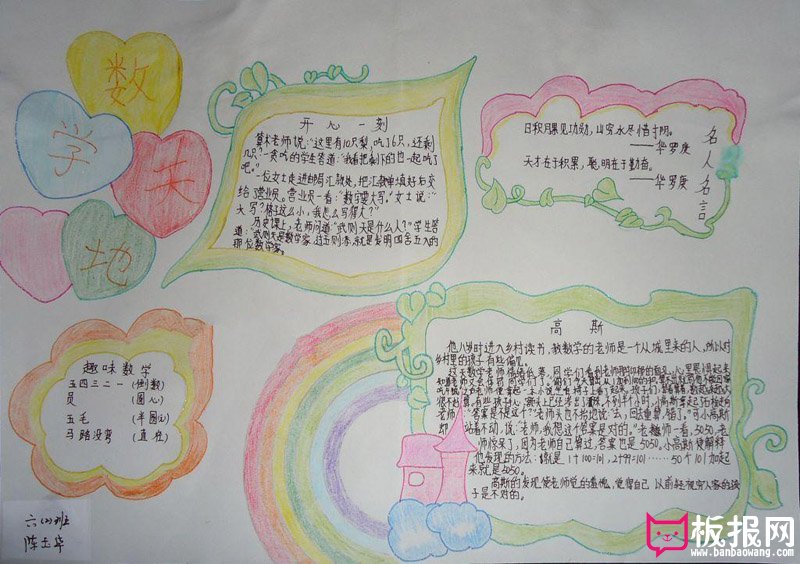 数
学
天
地
开心一刻
算术老师说:“这里有10只梨,吃了6只,还剩
几只?”贪吃的学生答道:“我看把剩下的也一起吃了
吧。”
一位女士走进邮局汇款处,把汇款单填好后交
给营业员。营业员一看:“数字要大写。”女士说:“
大写?格子这么小,我怎么写得大?”
历史课上,老师问道“武则天是什么人?”学生答
那位数学家。
日积月累见功勋,山穷水尽惜寸阴。
——华罗庚
天才在于积累,聪明在于勤奋。
——华罗庚
名人名言
趣味数学
五四三二一 (倒数)
员 (圆心)
五毛 (半圆)
马路没弯 (直径)
高斯
他八岁时进入乡村读书,教数学的老师是一个从城里来的人,
乡村里的孩子有些偏见。
老师:“答案是不是这个?”老师头也不抬地说:“去,回去重算,错了。”可小高斯
站着不动,说:“老师,我想这个答案是对的。”老师一看,5050,老
师惊呆了,因为老师自己算过,答案也是5050。小高斯便解释
他发现的方法:1+100=101,2+99=101……50个101加起
来就是5050。
高斯的发现,使老师觉的羞愧,觉得自己以前轻视穷人家的孩
子是不对的。
六(2)班
板报网
www.banbaowang.com